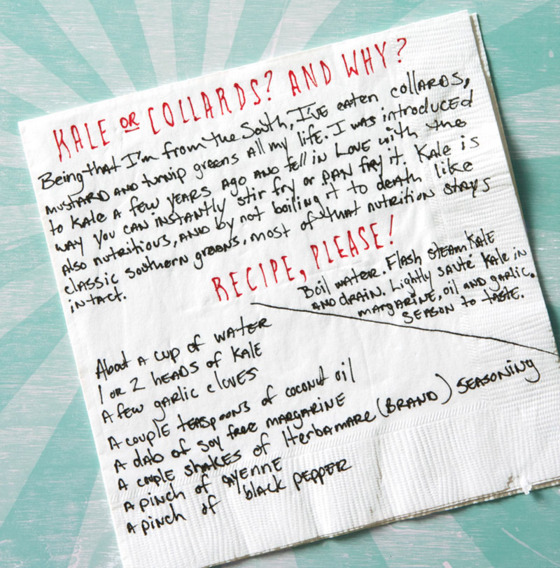 KALE OR COLLARDS? AND WHY?
Being that I'm from the South, I've eaten collards,
mustard and turnip greens all my life. I was introduced
to kale a few years ago and fell in love with the
way you can instantly stir fry or pan fry it. Kale is
also nutritious, and by not boiling it to death like
classic southern greens, most of that nutrition stays
intact.
RECIPE, PLEASE!
Boil water. Flash steam kale
and drain. Lightly sauté kale in
margarine, oil and garlic.
Season to taste.
About a cup of water
1 or 2 heads of kale
A few garlic cloves
A couple teaspoons of coconut oil
A dab of soy free margarine
A couple shakes of Herbamare (BRAND) seasoning
A pinch of cayenne
A pinch of black pepper